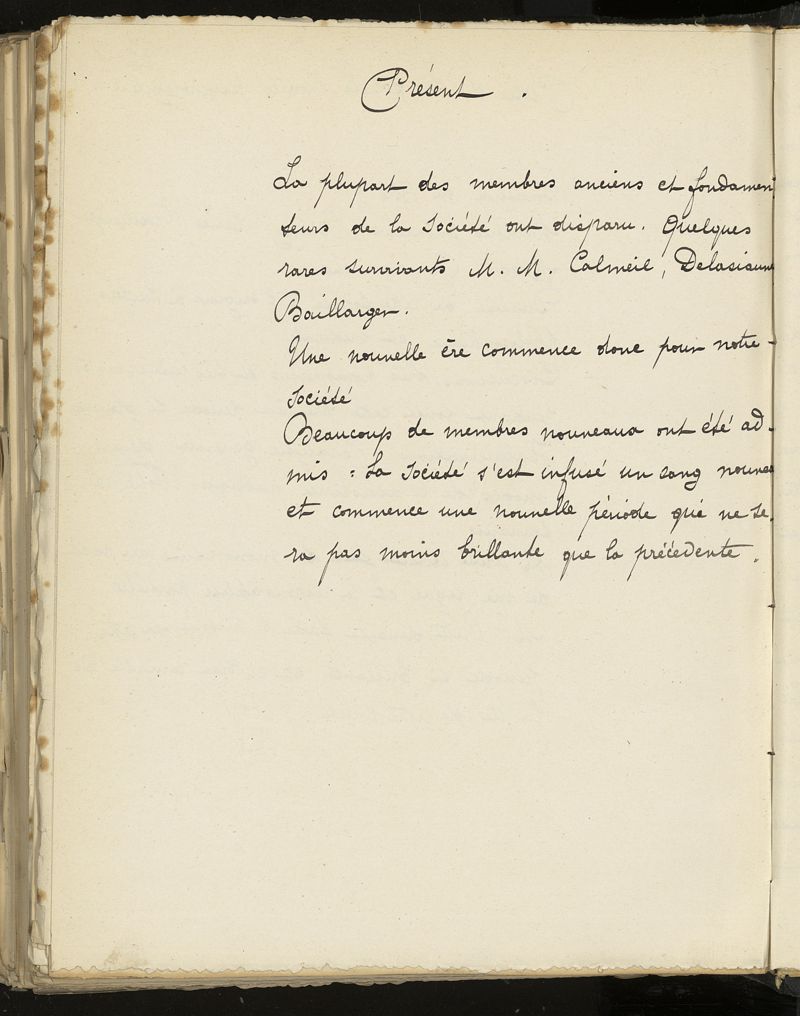 Présent .
La plupart des membres anciens et fondamen
teurs de la Société ont disparu. Quelques
rares survivants M. M. Calmeil, Delasiauve
Baillarger.
Une nouvelle ère commence donc pour notre -
Société
Beaucoup de membres nouveaux ont été ad-
mis : La Société s'est infusé un sang nouveau
et commence une nouvelle période qui ne se-
ra pas moins brillante que la précédente.